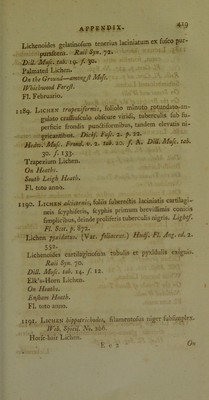 APPENDIX. 429
Lichenoides gelatinosum tenerius laciniatum ex fusco pur-
purascens. Raii Syn. 72.
Dill. Musc. tab. 19. f. 30.
Palmated Lichen.
On the Ground—amongst Moss.
Whichwood Forest.
Fl. Februario.
1189. Lichen trapeziformis, foliolo minuto rotundato-an-
gulato crassiusculo obscure viridi, tuberculis sub su-
perficie frondis punctiformibus, tandem elevatis ni-
gricantibus. Dicks. Fasc. 2. p. 22.
Hedw. Musc. Frond. v. 2. tab. 20. f. A. Dill. Musc. tab.
30. f. 133.
Trapezium Lichen.
On Heaths.
South Leigh Heath.
Fl. toto anno.
1190. Lichen alcicornis, foliis suberectis laciniatis cartilagi-
neis scyphiferis, scyphis primum brevissimis conicis
simplicibus, deinde proliferis tuberculis nigris. Lightf.
Fl. Scot. p. 872.
Lichen pyxidatus. (Var. foliaceus.) Huds. Fl. Ang. ed. 2.
552.
Lichenoides cartilaginosum tubulis et pyxidulis exiguis.
Raii Syn. 70.
Dill. Musc. tab. 14. f. 12.
Elk's-Horn Lichen.
On Heaths.
Ensham Heath.
Fl. toto anno.
1191. Lichen hippotrichodes, filamentosus niger subsimplex.
Web. Spicil. No. 266.
Horse-hair Lichen.
On